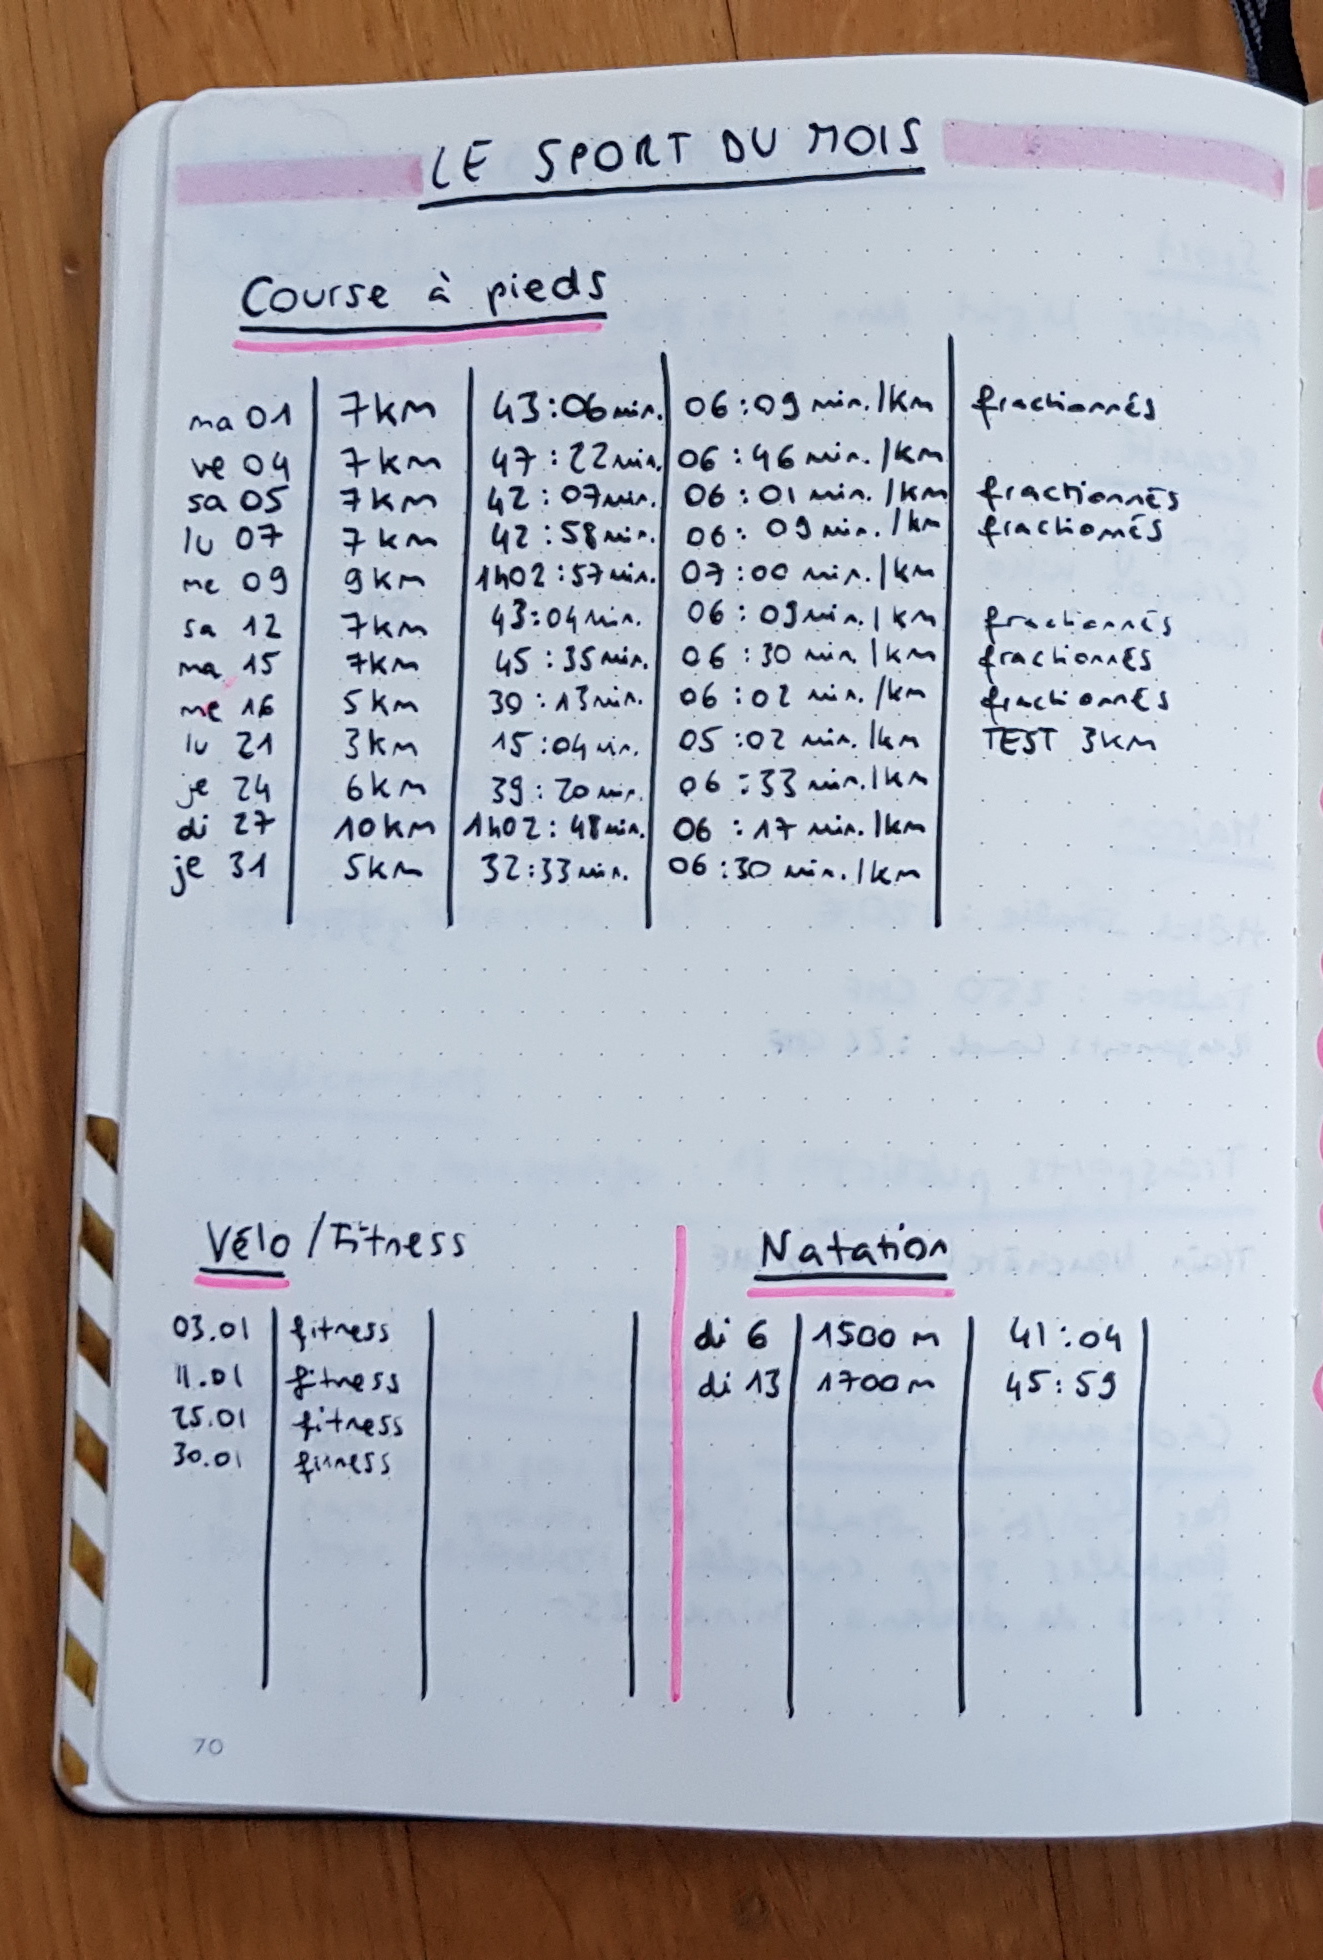 LE SPORT DU MOIS
Course à pieds
ma 01 7km 43:06min. 06:09 min./km fractionnés
ve 04 7km 47:22min. 06:46 min./km
sa 05 7km 42:07min. 06:01 min./km fractionnés
lu 07 7km 42:58min. 06:09 min./km fractionnés
me 09 9km 1h02:57min. 07:00 min./km
sa 12 7km 43:04min. 06:09min./km fractionnés
ma 15 7km 45:35min. 06:30 min./km fractionnés
me 16 5km 30:13min. 06:02 min./km fractionnés
lu 21 3km 15:04min. 05:02 min./km TEST 3KM
je 24 6km 39:20min. 06:33min./km
di 27 10km 1h02:48min. 06:17 min./km
je 31 5km 32:33min. 06:30 min./km
Vélo/Fitness
03.01 fitness
11.01 fitness
25.01 fitness
30.01 fitness
Natation
di 6 1500m 41:04
di 13 1700m 45:59
70